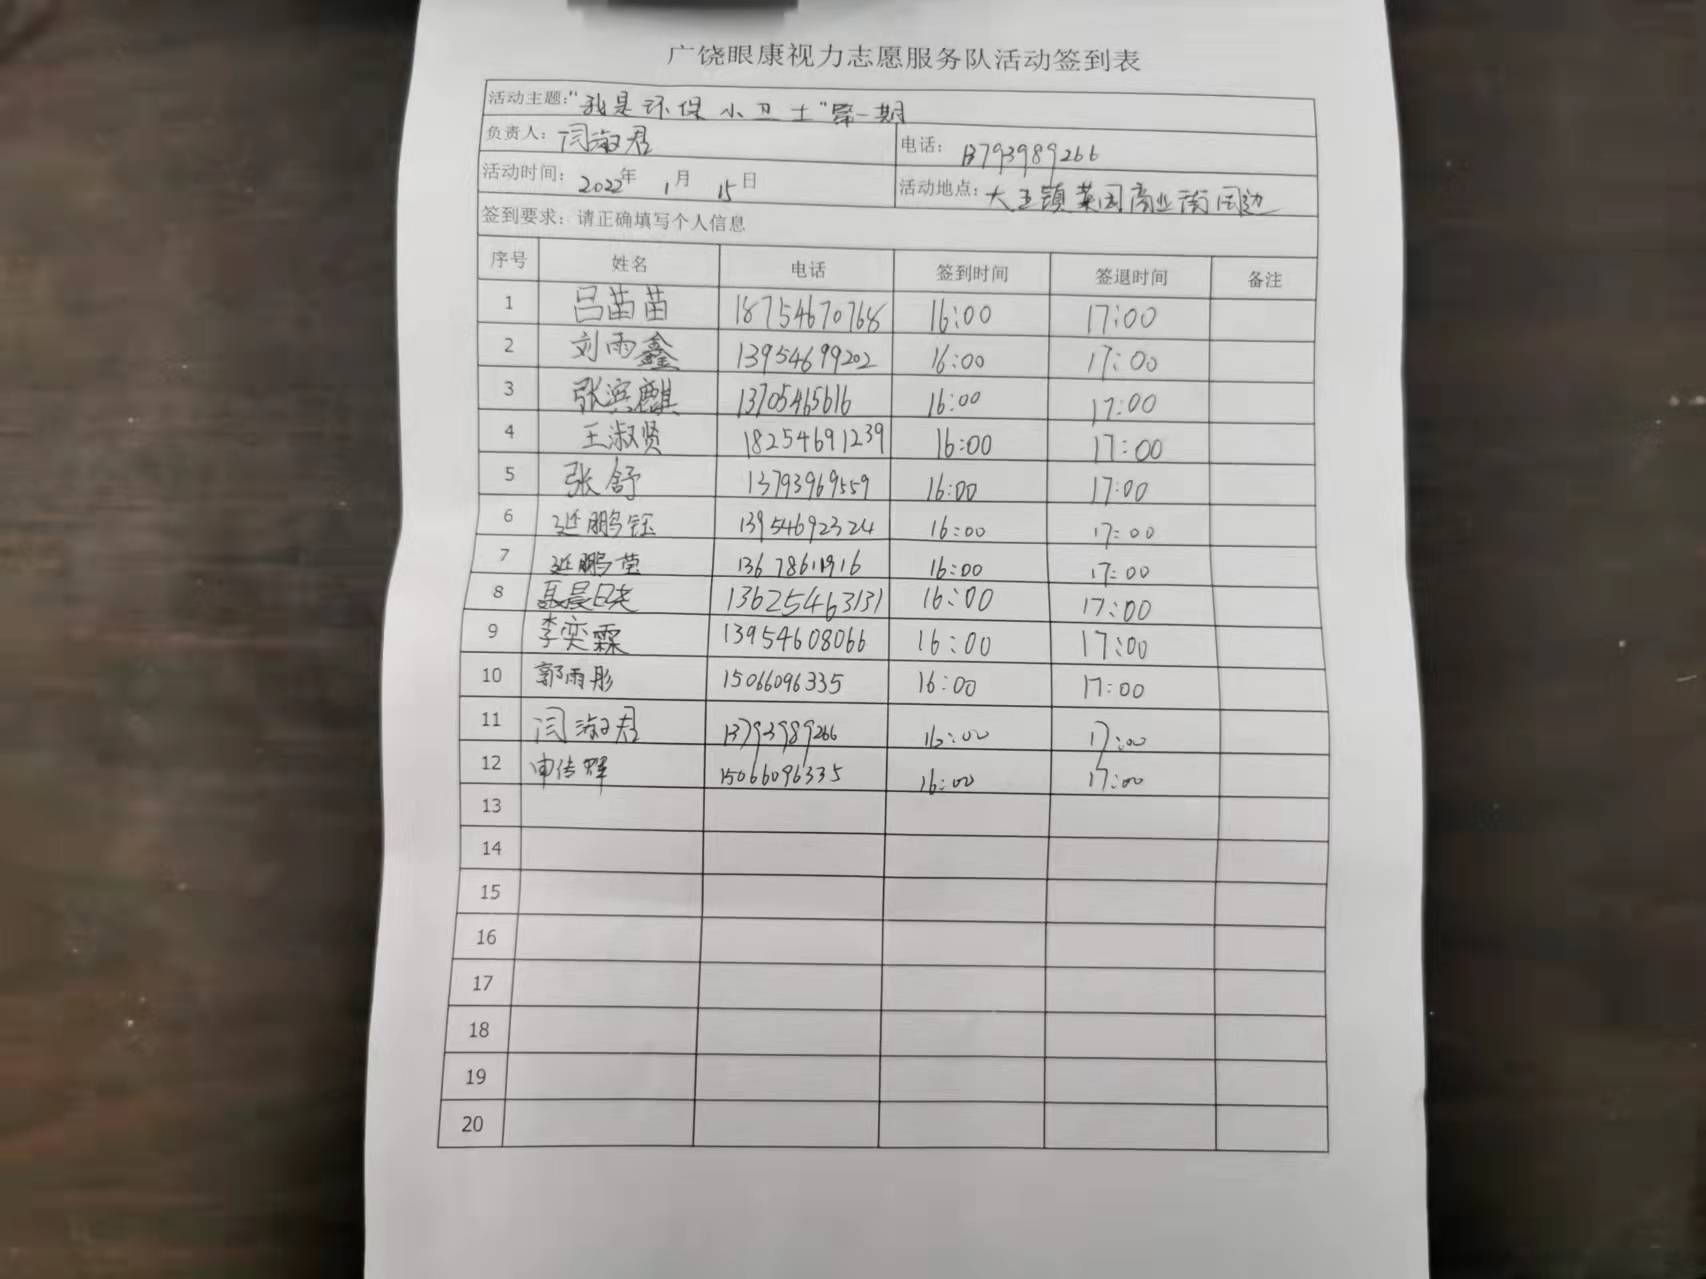 广饶眼康视力志愿服务队活动签到表
活动主题:"我是环保小卫士"第一期
负责人: 闫淑君 电话: 13793989266
活动时间: 2022年 1月 15日 活动地点: 大王镇菜园商业街周边
签到要求: 请正确填写个人信息
序号 姓名 电话 签到时间 签退时间 备注
1 吕苗苗 18754670768 16:00 17:00
2 刘雨鑫 13954699202 16:00 17:00
3 张滨麒 13705465616 16:00 17:00
4 王淑贤 18254691239 16:00 17:00
5 张舒 13793969559 16:00 17:00
6 延鹏钰 13954692324 16:00 17:00
7 延鹏莹 16:00 17:00
8 聂晨 13625463131 16:00 17:00
9 李奕霖 13954608066 16:00 17:00
10 郭雨彤 15066096335 16:00 17:00
11 闫淑君 13793989266 16:00 17:00
12 申传辉 15066096335 16:00 17:00
13
14
15
16
17
18
19
20